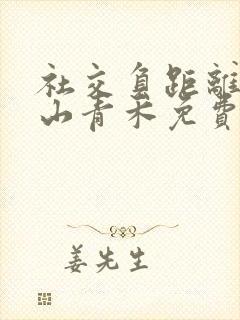 社交負距離
山青木免費
姜先生